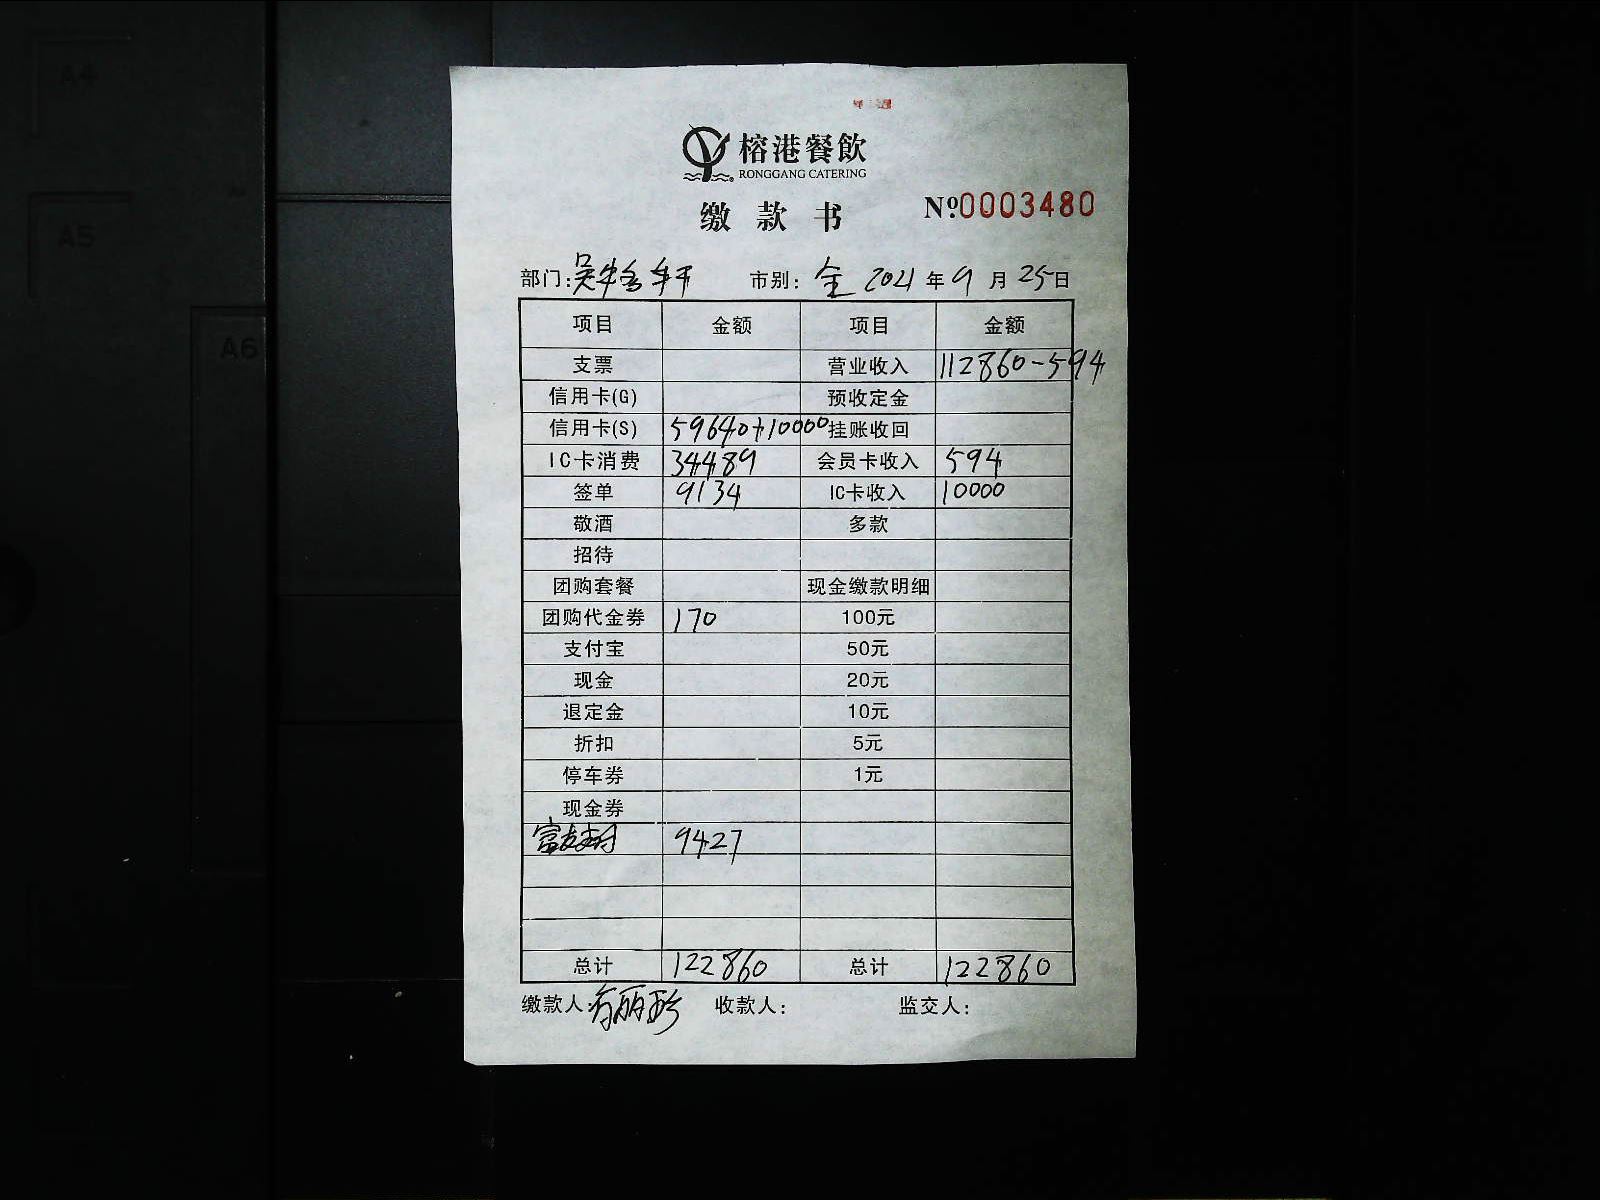 A4
A5
A6
榕港餐飲
RONGGANG CATERING
缴款书
№0003480
部门: 市别: 全 2021年9月25日
项目 金额 项目 金额
支票 营业收入 112860-594
信用卡(G) 预收定金
信用卡(S) 59640+10000 挂账收回
IC卡消费 34489 会员卡收入 594
签单 9134 IC卡收入 10000
敬酒 多款
招待
团购套餐 现金缴款明细
团购代金券 170 100元
支付宝 50元
现金 20元
退定金 10元
折扣 5元
停车券 1元
现金券
富友支付 9427
总计 122860 总计 122860
缴款人: 收款人: 监交人: